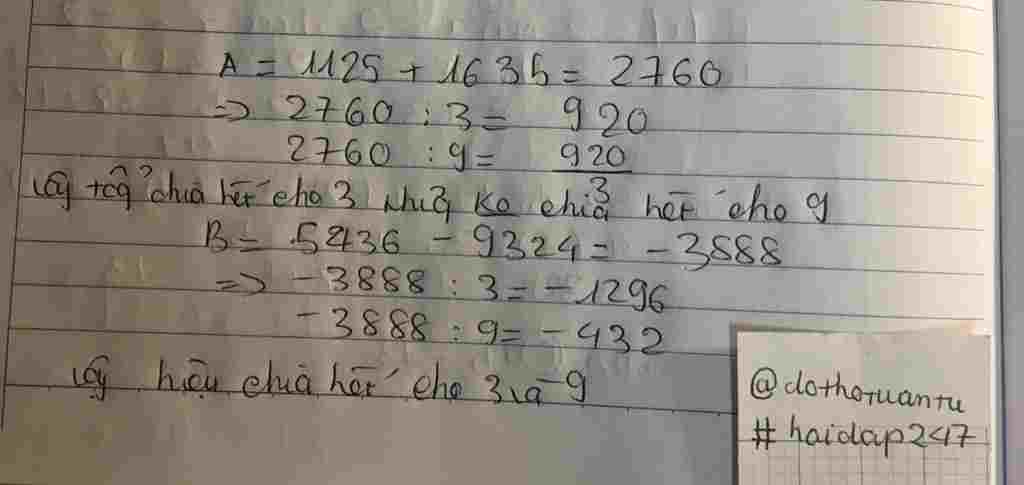 A = 1125 + 1635 = 2760
=> 2760 : 3 = 920
2760 : 9 = 920/3
Vậy tổng chia hết cho 3 nhưg ko chia hết cho 9
B = 5436 - 9324 = -3888
=> -3888 : 3 = -1296
-3888 : 9 = -432
Vậy hiệu chia hết cho 3 và 9
@dothotuantu
#hoidap247